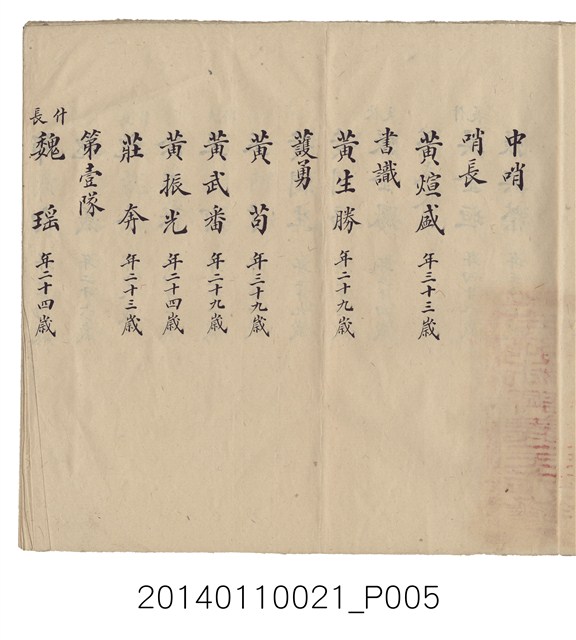 中哨
哨長
黃煊盛 年三十三歲
書識
黃生勝 年二十九歲
護勇
黃苟 年三十九歲
黃武番 年二十九歲
黃振光 年二十四歲
莊奔 年二十三歲
第壹隊
什長
魏瑶 年二十四歲
20140110021_P005